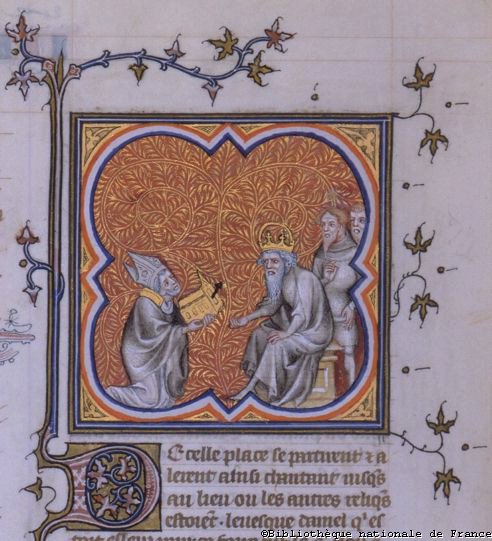 De celle place se partirent & a
lerent ainsi chantant iusqs
au lieu ou les autres reliqs
estoiet. leuesque daniel q'es
©Bibliothèque nationale de France